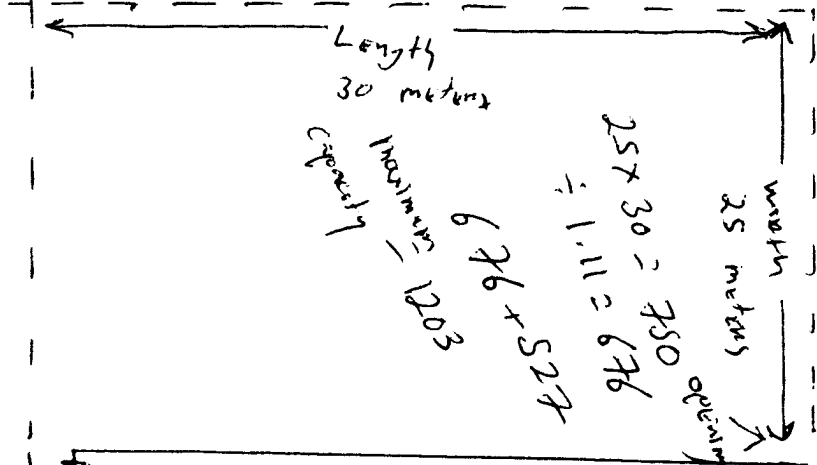 Length
30 meters
width
25 meters
25 x 30 = 750
÷ 1.11 = 676
676 + 527
maximum = 1203
capacity
opening